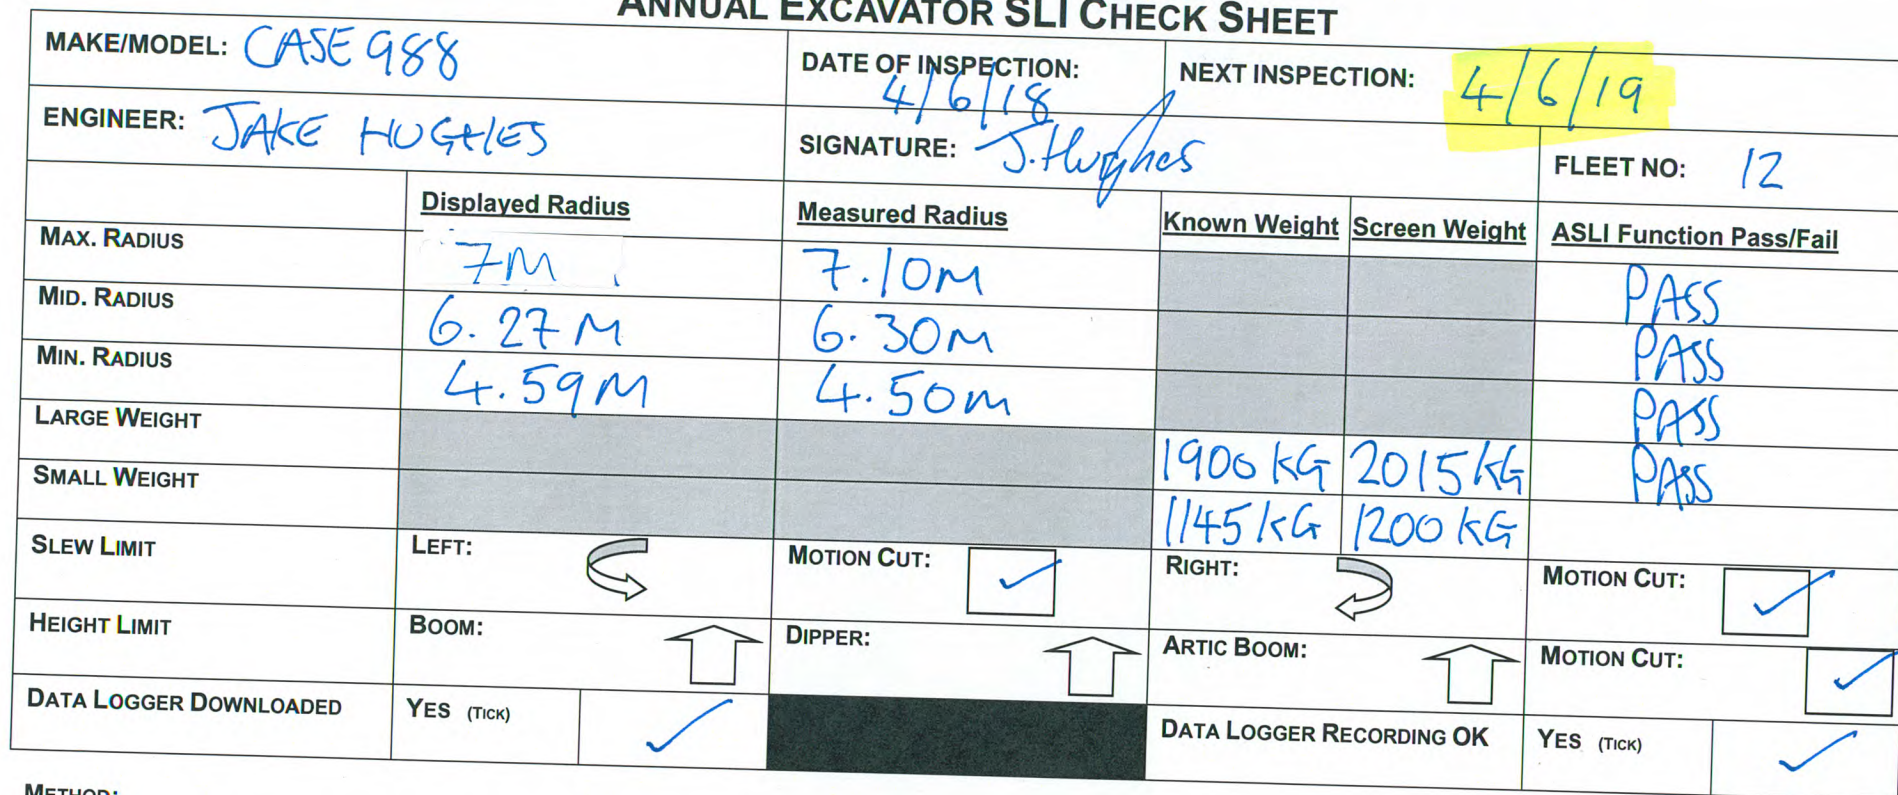 ANNUAL EXCAVATOR SLI CHECK SHEET
MAKE/MODEL: CASE 988
DATE OF INSPECTION: 4/6/18
NEXT INSPECTION: 4/6/19
ENGINEER: JAKE HUGHES
SIGNATURE: J.Hughes
FLEET NO: 12
Displayed Radius Measured Radius Known Weight Screen Weight ASLI Function Pass/Fail
MAX. RADIUS 7M 7.10M PASS
MID. RADIUS 6.27M 6.30M PASS
MIN. RADIUS 4.59M 4.50M PASS
LARGE WEIGHT 1900 KG 2015 KG PASS
SMALL WEIGHT 1145 KG 1200 KG
SLEW LIMIT LEFT: MOTION CUT: ✓ RIGHT: MOTION CUT: ✓
HEIGHT LIMIT BOOM: DIPPER: ARTIC BOOM: MOTION CUT: ✓
DATA LOGGER DOWNLOADED YES (TICK) ✓ DATA LOGGER RECORDING OK YES (TICK) ✓
METHOD: